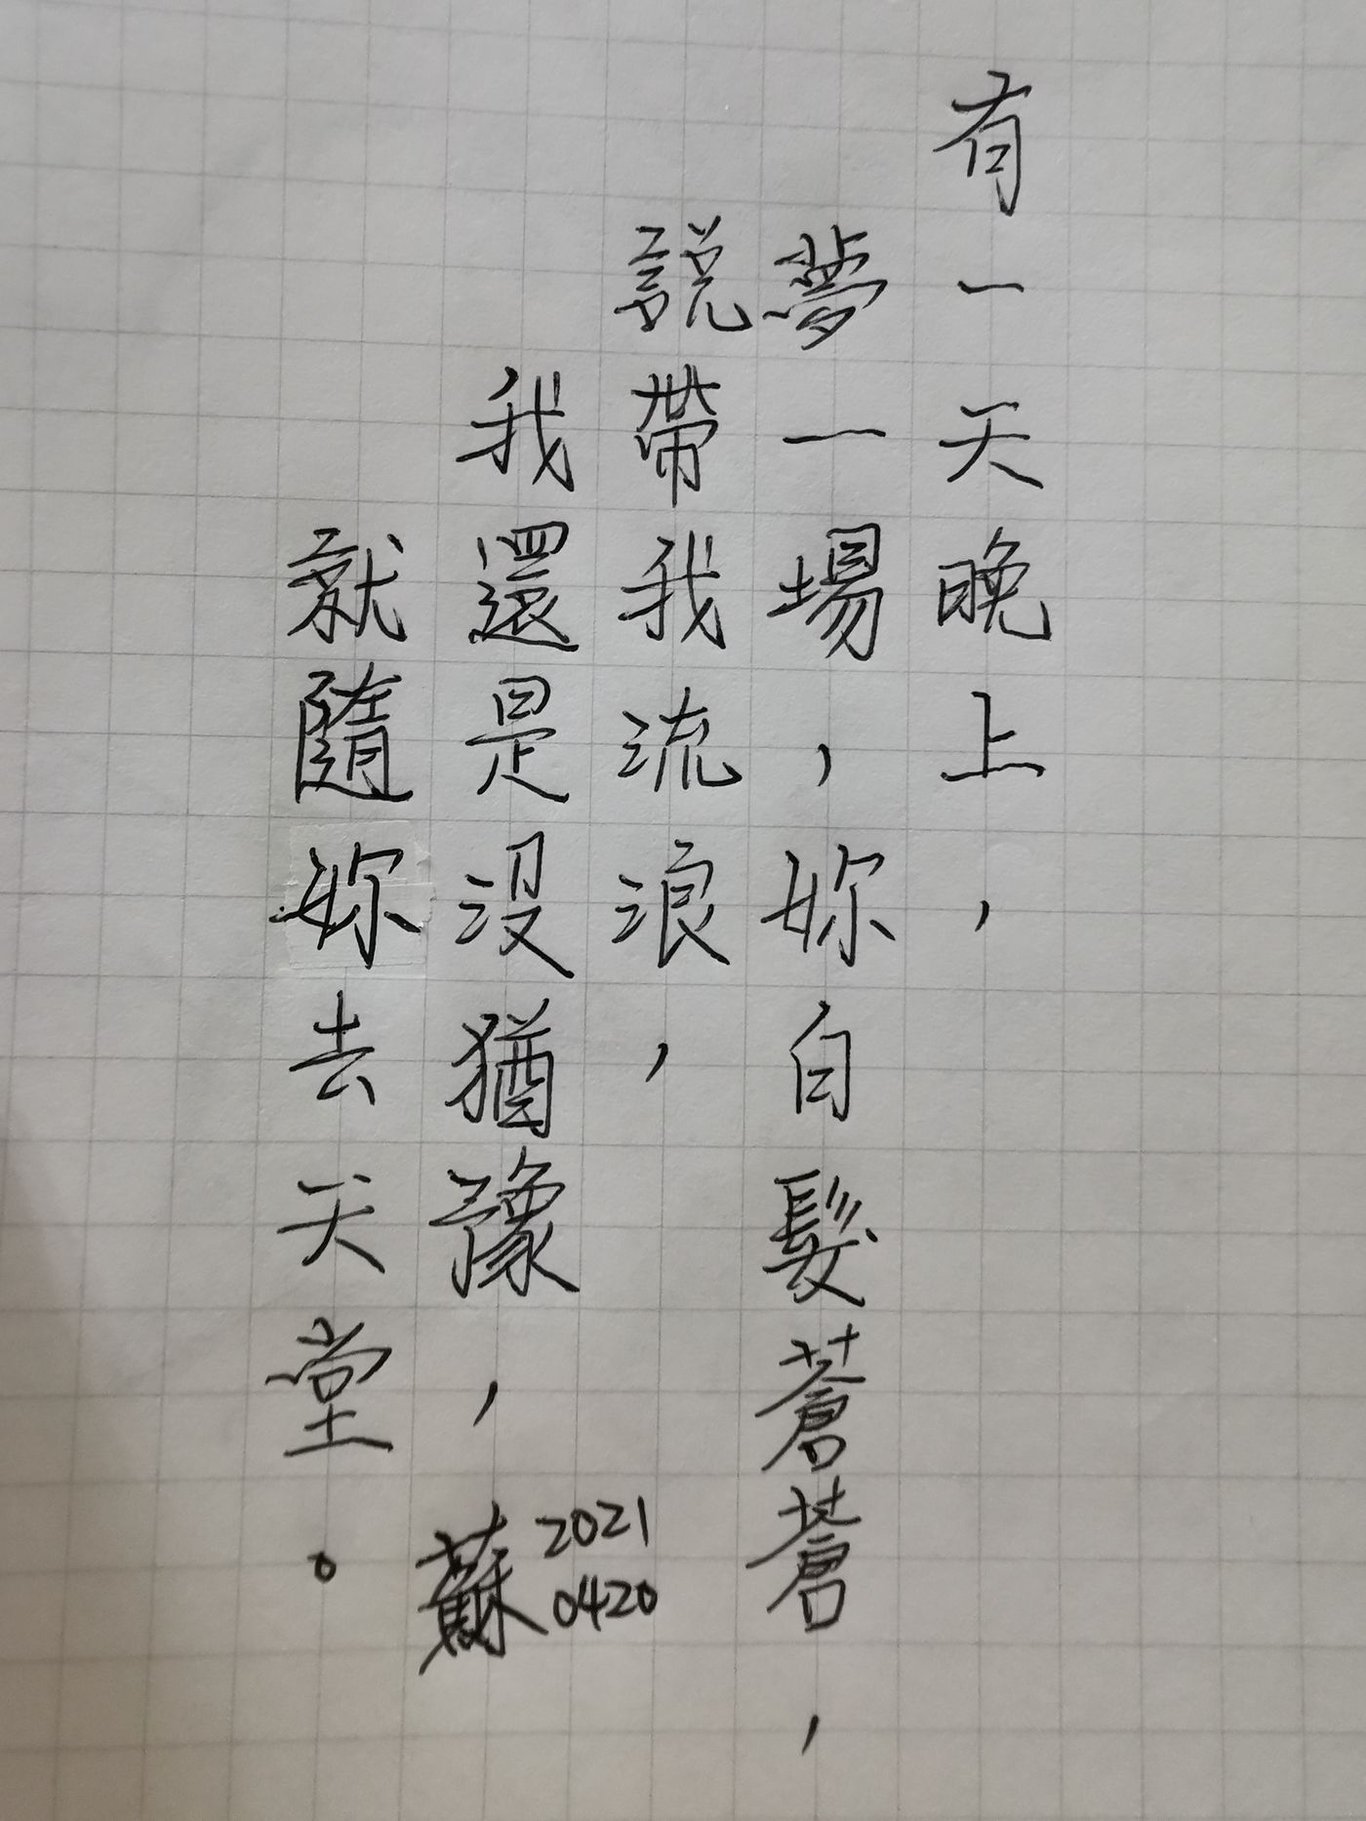 有一天晚上，
夢一場，妳白髮蒼蒼，
説帶我流浪，
我還是没猶豫，
就隨妳去天堂。
蘇
2021
0420